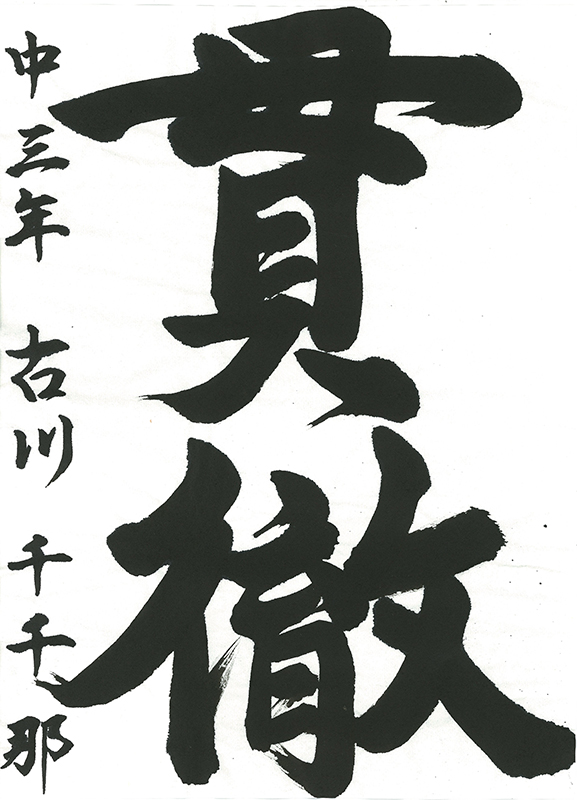 貫徹
中三年 古川 千千那